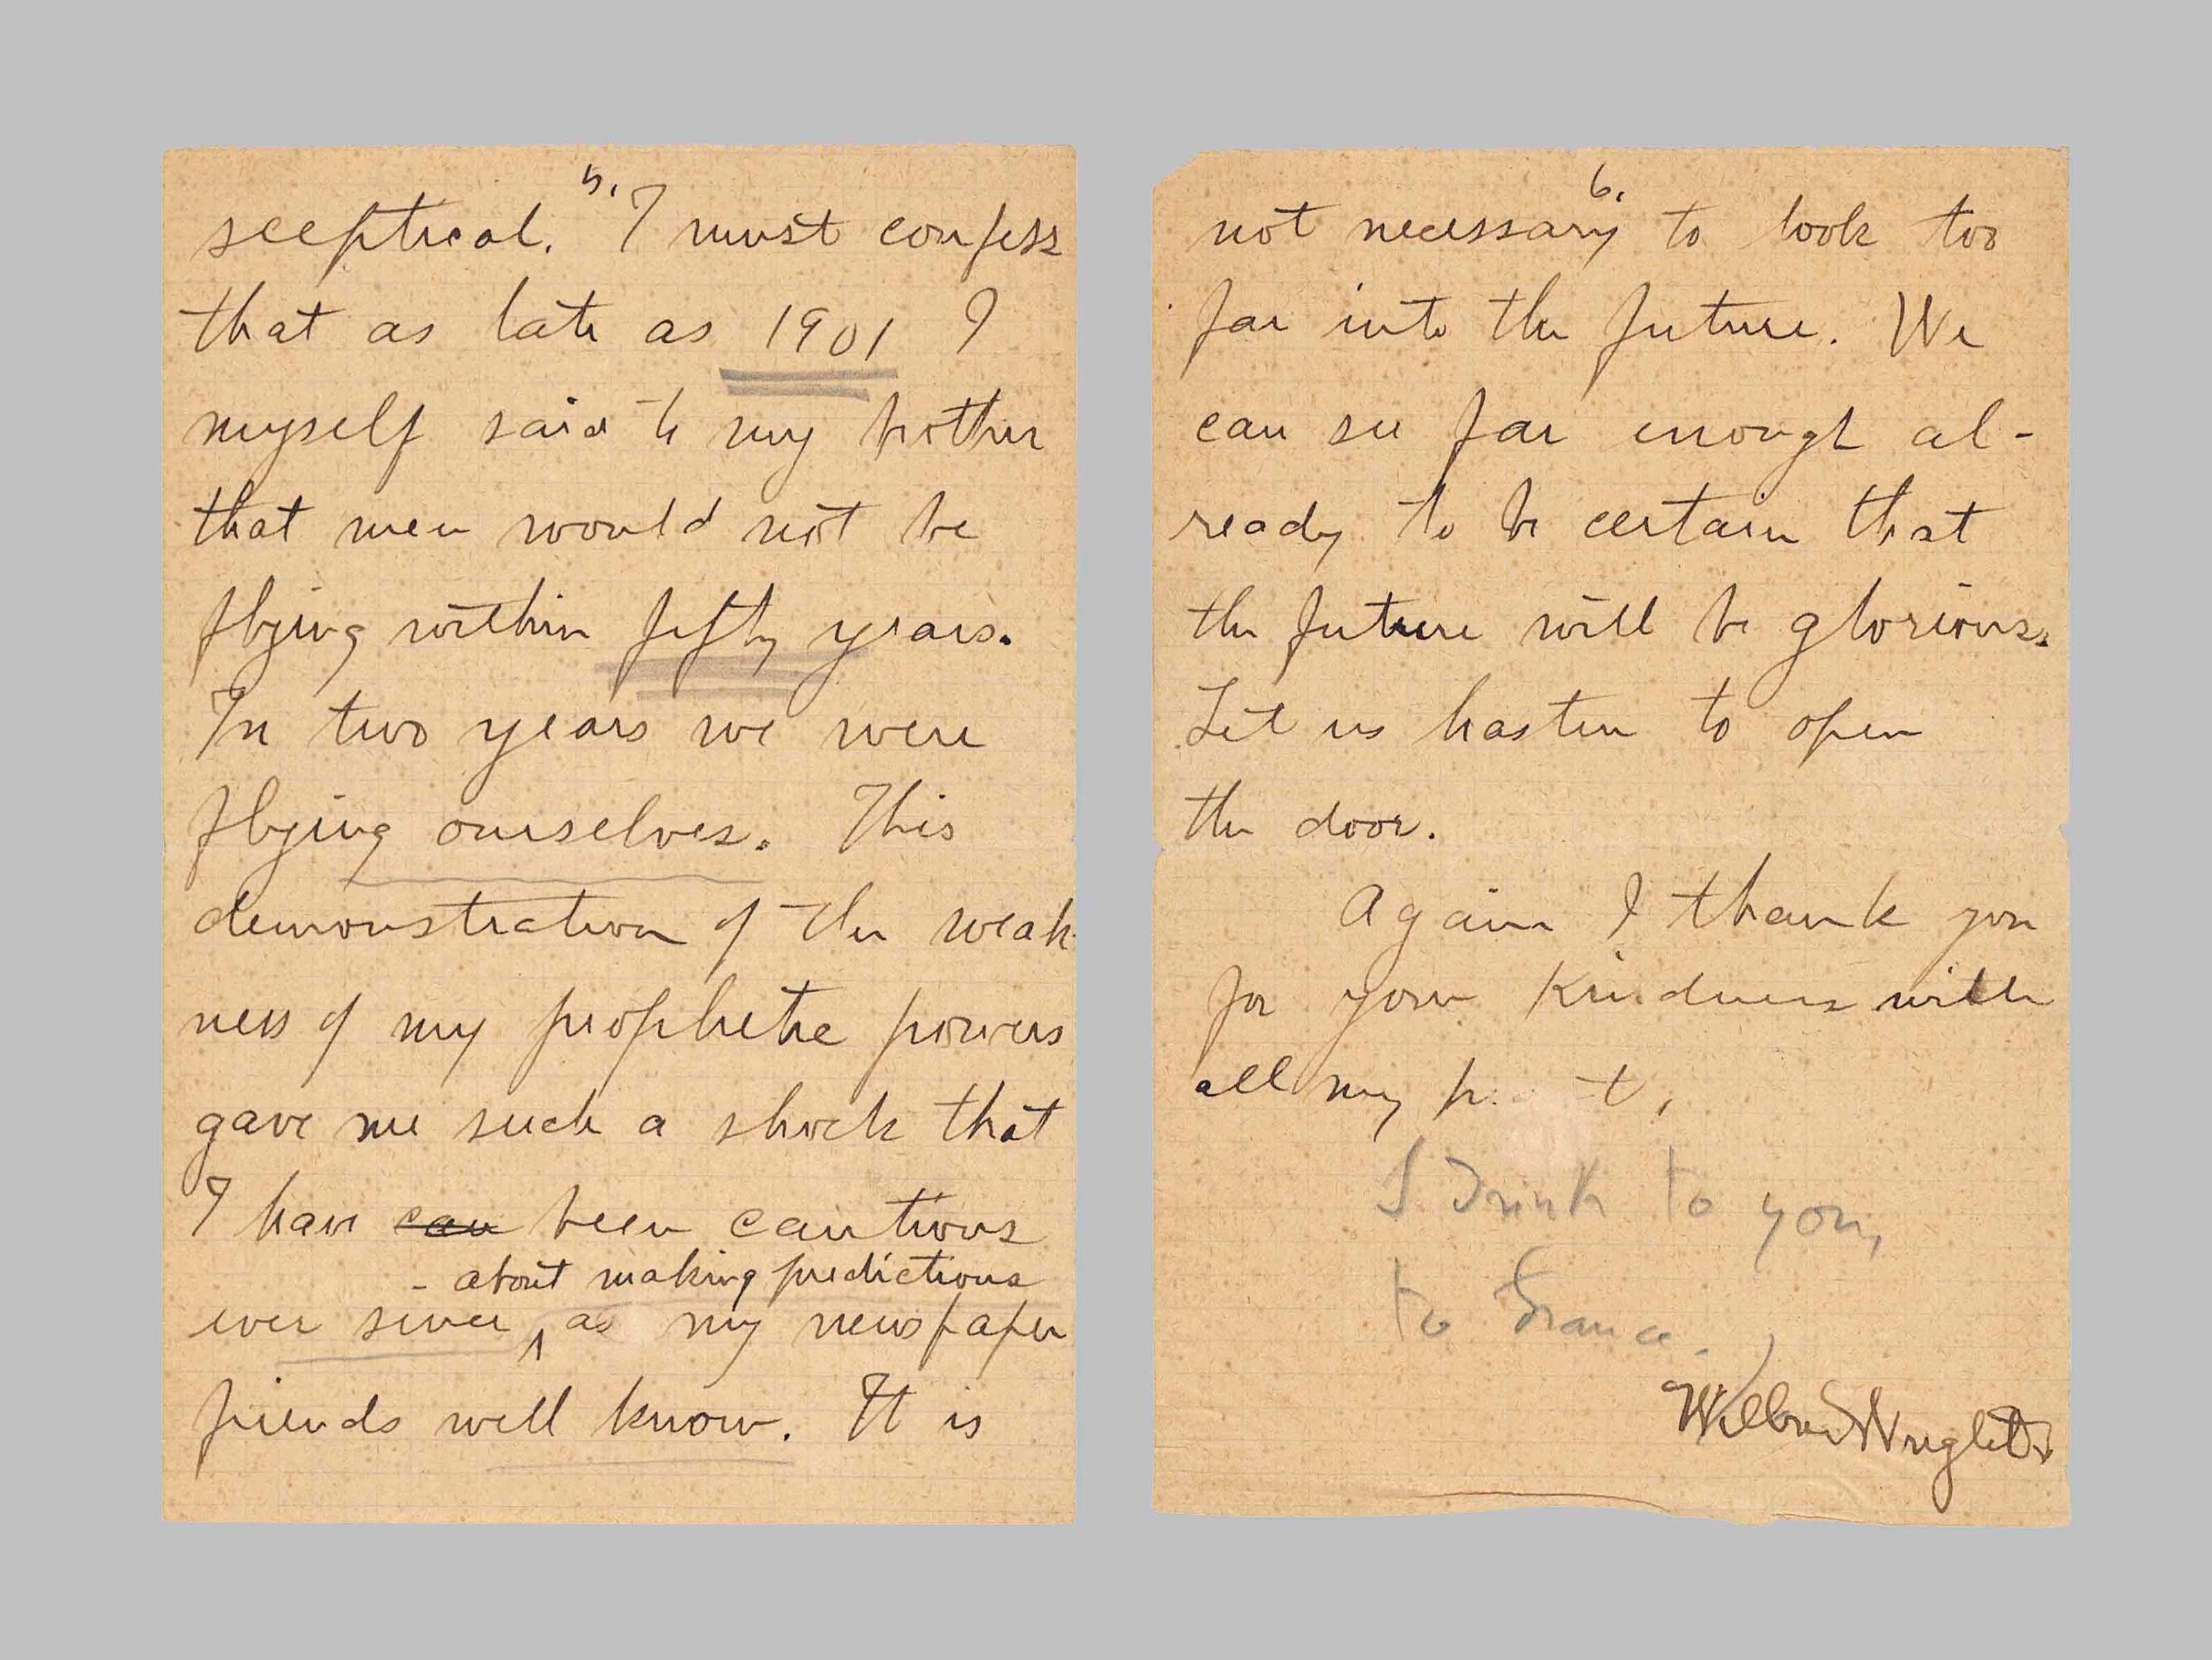 5.
sceptical. I must confess
that as late as 1901 I
myself said to my brother
that men would not be
flying within fifty years.
In two years we were
flying ourselves. This
demonstration of the weak-
ness of my prophetic powers
gave me such a shock that
I have can been cautious
- about making predictions
ever since, as my newspaper
friends well know. It is
6.
not necessary to look too
far into the future. We
can see far enough al-
ready to be certain that
the future will be glorious.
Let us hasten to open
the door.
Again I thank you
for your kindness with
all my
I Drink to you,
to France.
Wilbur Wright